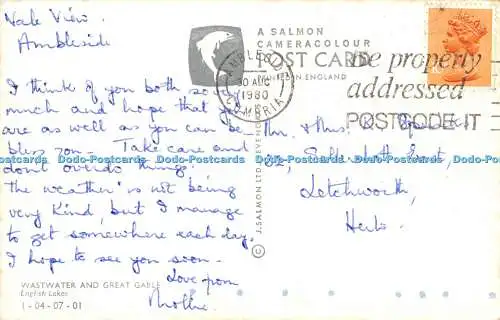 Vale View.
Ambleside
I think of you both so very
much and hope that you
are as well as you can be
bless you. Take care and
dont overdo things.
the weather is not being
very kind, but I manage
to get somewhere each day.
I hope to see you soon.
Love from
Mollie.
WASTWATER AND GREAT GABLE
English Lakes
1-04-07-01
A SALMON
CAMERACOLOUR
POST CARD
PRINTED IN ENGLAND
© J. SALMON LTD SEVENOAKS
AMBLESIDE
30 AUG
1980
CUMBRIA
Be properly
addressed
POSTCODE IT
Mr. & Mrs.
Letchworth,
Herts.
Dodo-Postcards Dodo-Postcards Dodo-Postcards Dodo-Postcards Dodo-Postcards Dodo-Postcards